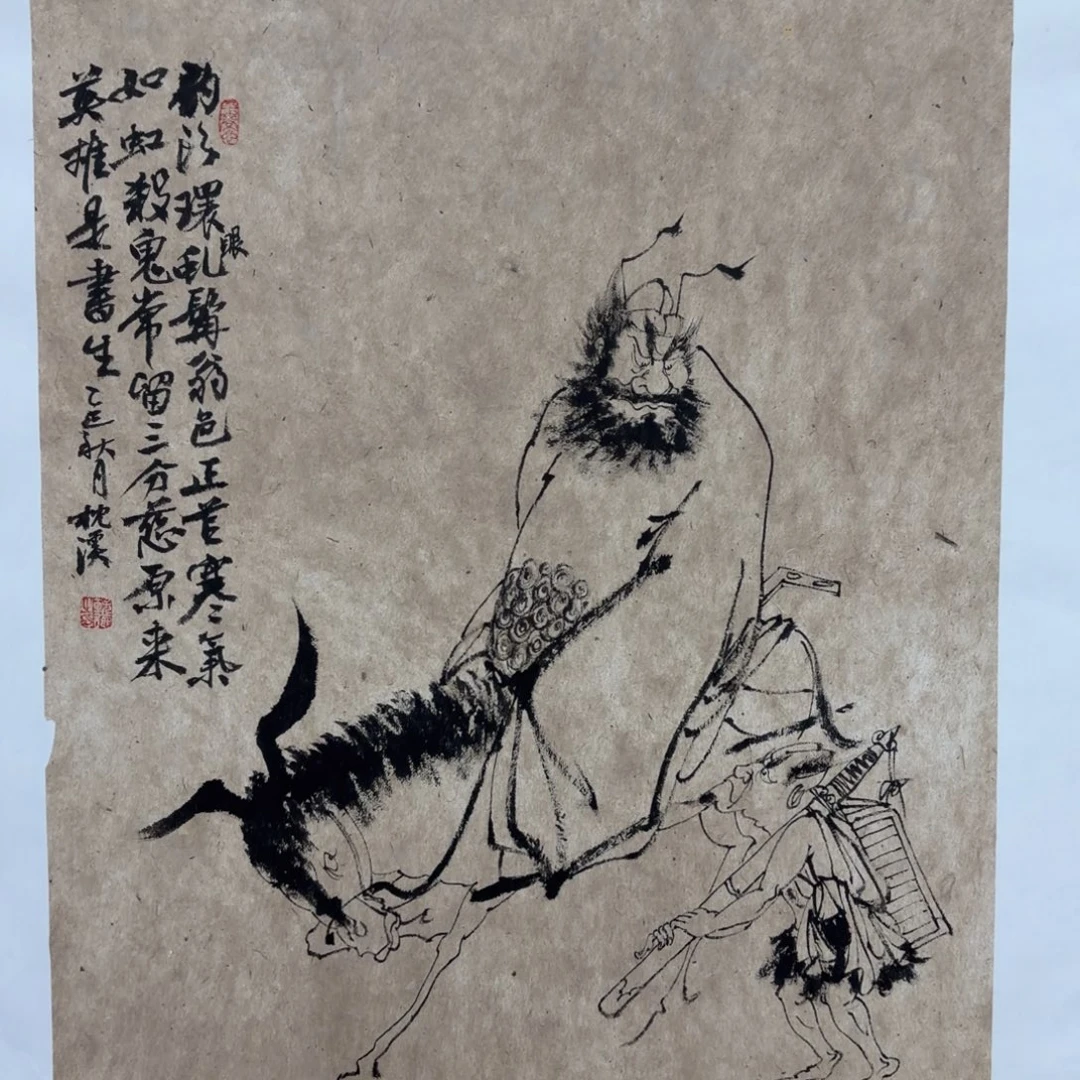 豹頭環眼乱翁色正芒寒氣
如虹殺鬼常留三分慈原来
英雄是書生乙巳秋月枕溪